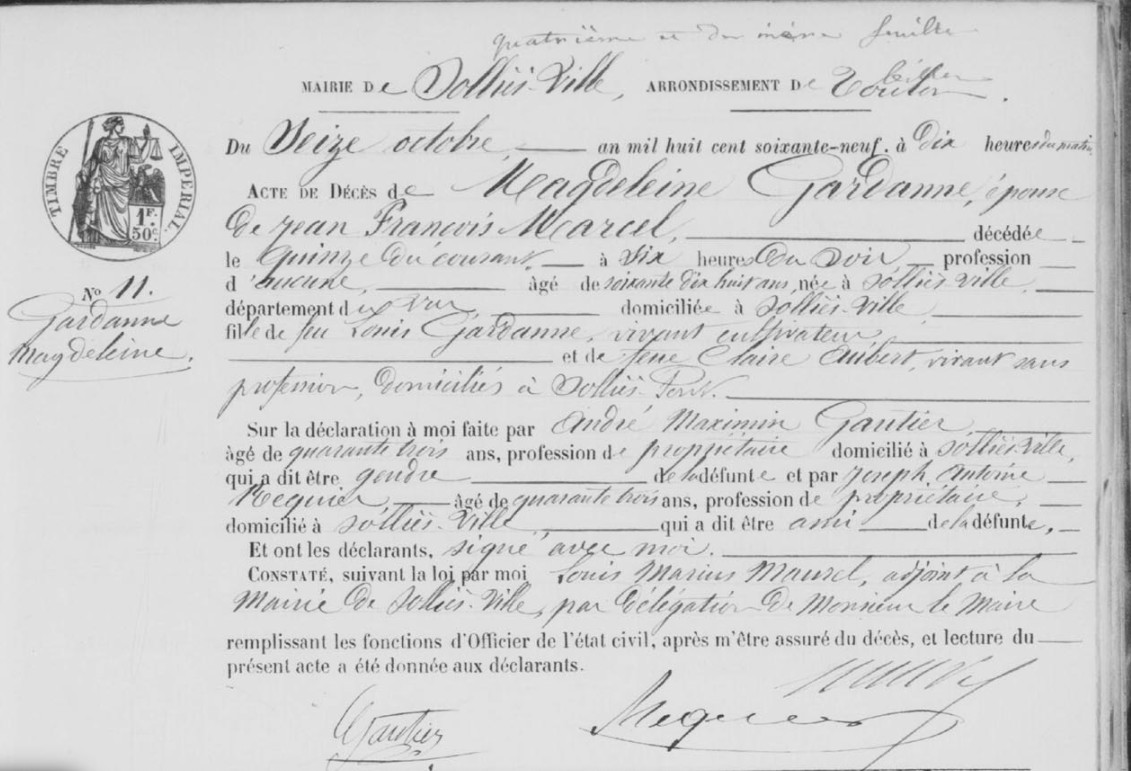 quatrième et de même feuille
MAIRIE De Solliès-Ville, ARRONDISSEMENT De Toulon.
Du Seize octobre an mil huit cent soixante-neuf. à Dix heures du matin
ACTE DE DÉCÈS de Magdeleine Gardanne, épouse
De jean François Marcel, décédée
le quinze du courant à Six heures Du Soir profession
d'aucune, âgé de soixante dix huit ans, née à Solliès-Ville,
département du Var, domiciliée à Solliès-Ville,
fille de feu Louis Gardanne, vivant cultivateur
et de feue Claire Aubert, vivant sans
profession, domiciliés à Solliès-Pont.
Sur la déclaration à moi faite par André Maximin Gautier
âgé de quarante trois ans, profession de propriétaire domicilié à Solliès-Ville,
qui a dit être gendre de la défunte et par Joseph Antoine
Requier âgé de quarante trois ans, profession de propriétaire,
domicilié à Solliès-Ville, qui a dit être ami de la défunte,
Et ont les déclarants, signé avec moi.
CONSTATÉ, suivant la loi par moi Louis Marius Maurel, adjoint à la
Mairie de Solliès-Ville, par délégation de Monsieur le Maire
remplissant les fonctions d'Officier de l'état civil, après m'être assuré du décès, et lecture du
présent acte a été donnée aux déclarants.
TIMBRE IMPERIAL.
1F.
50c.
No 11.
Gardanne
Magdeleine.
Gautier